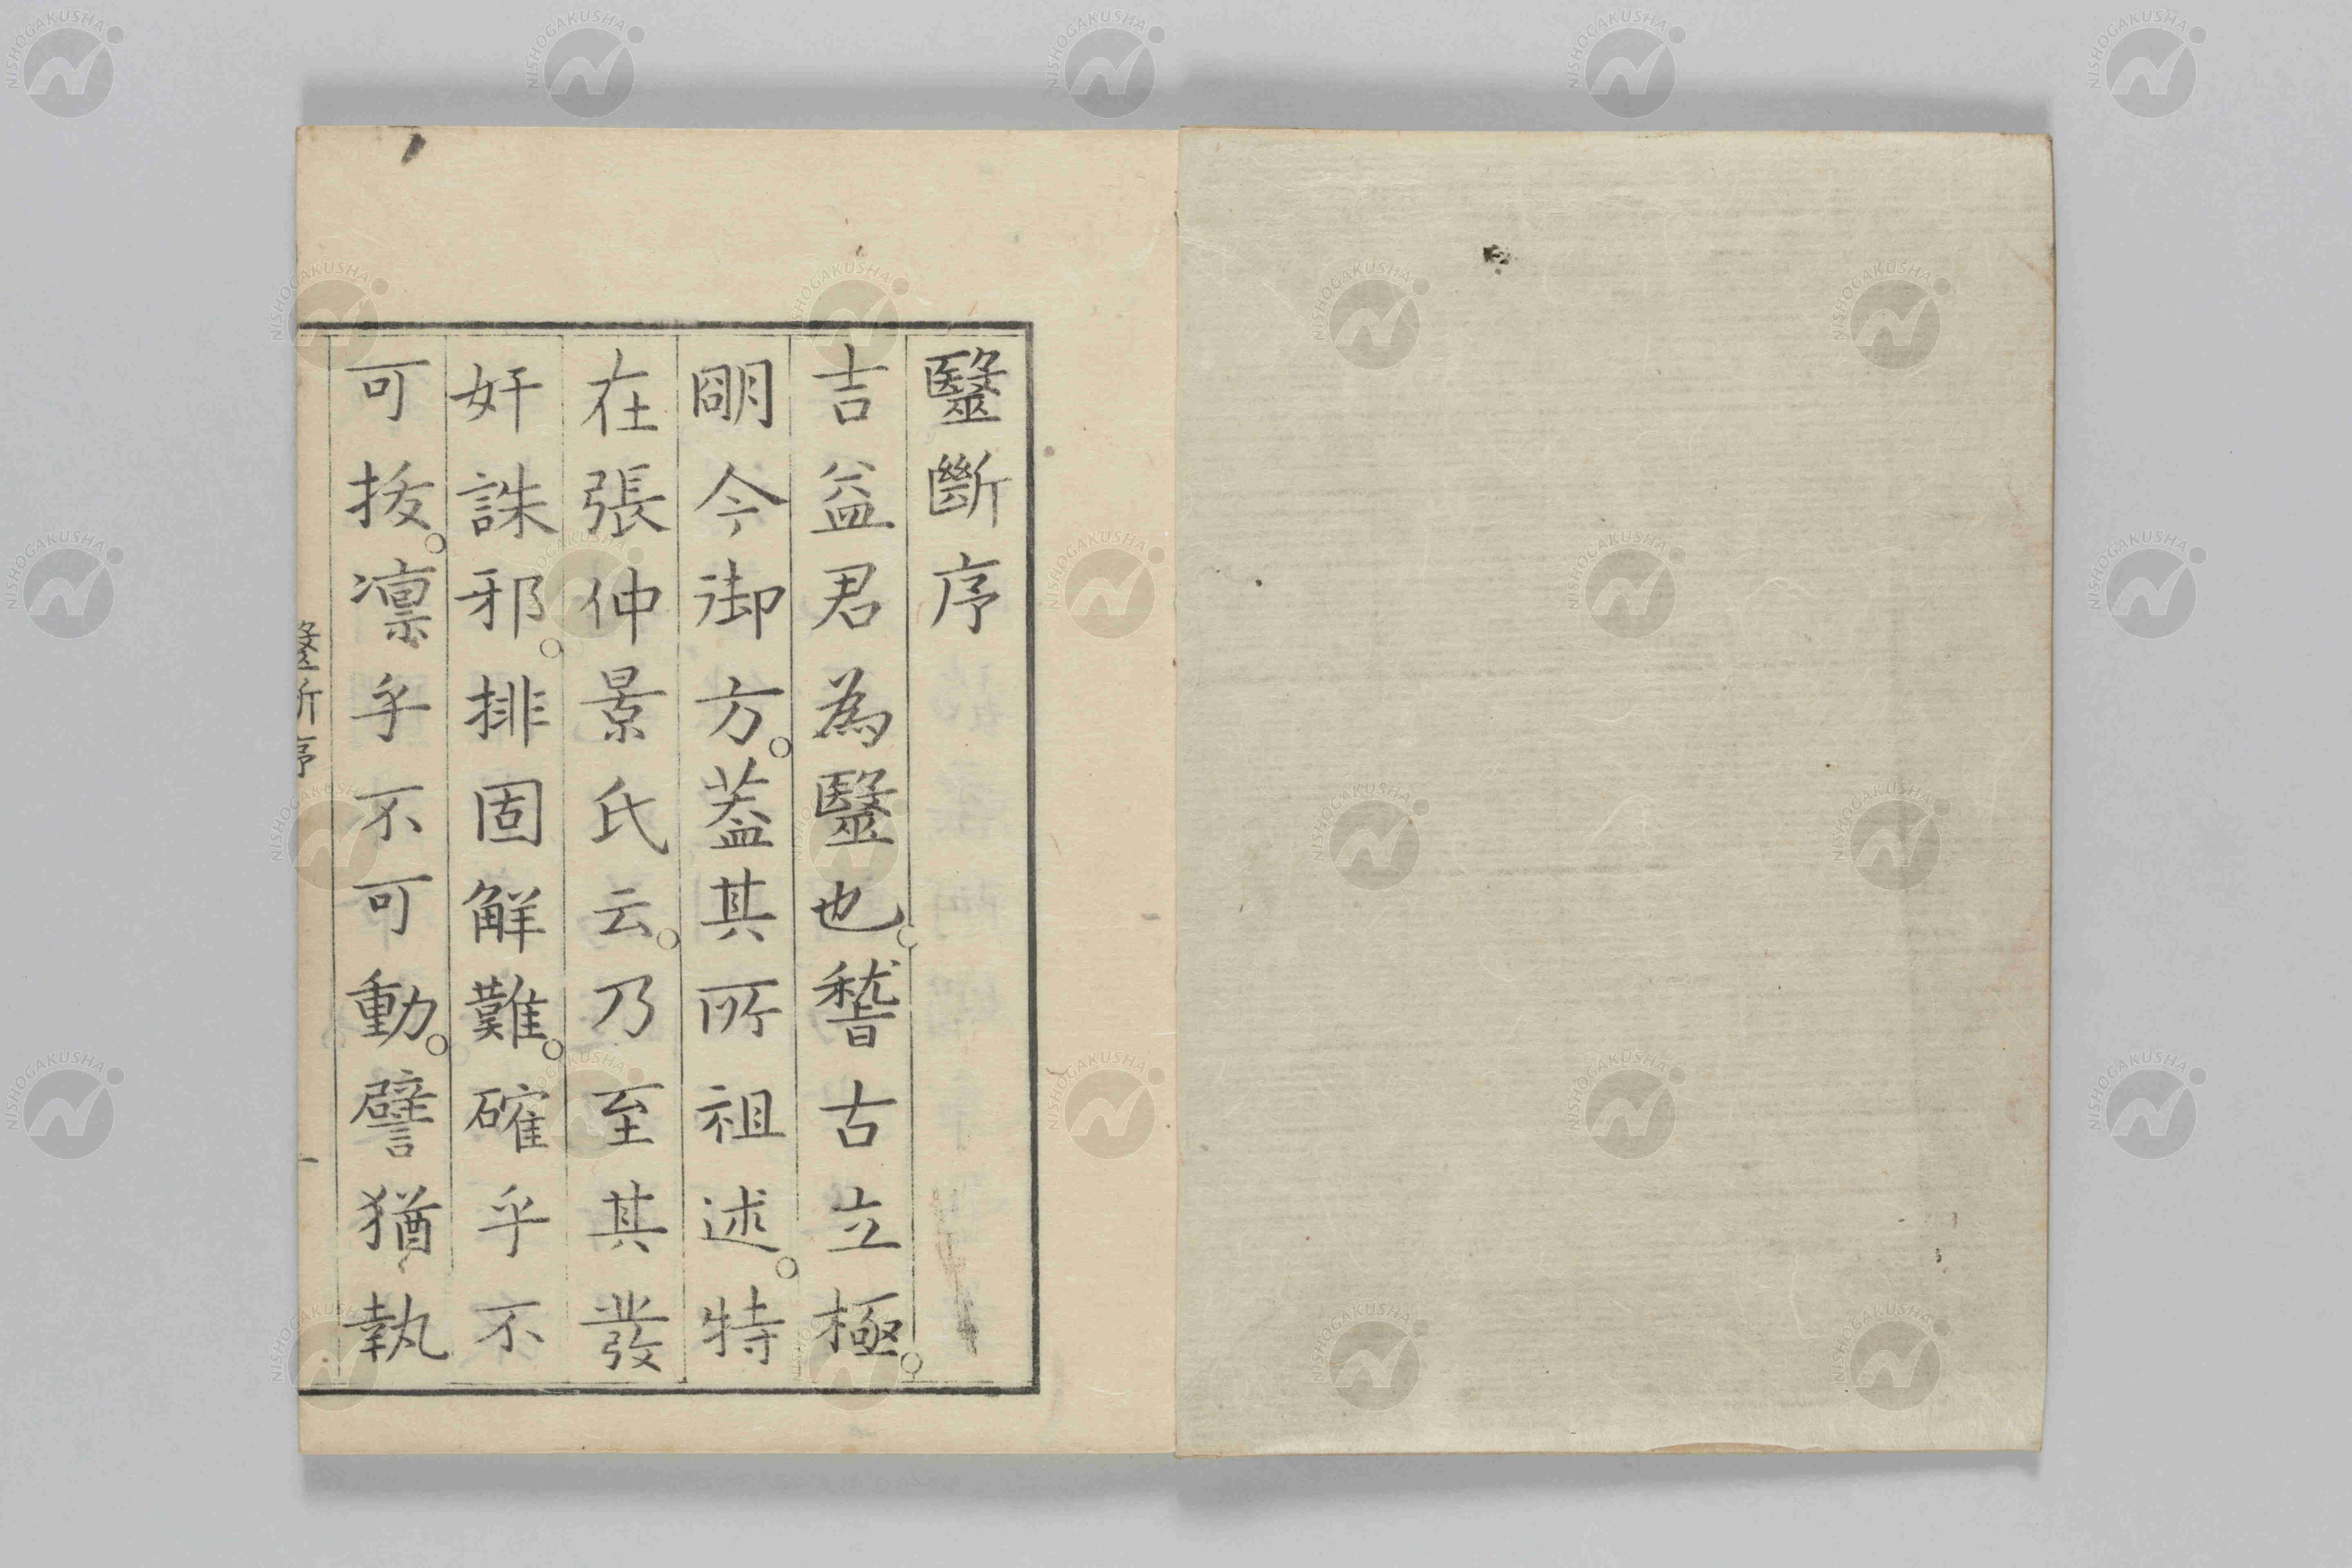 毉斷序
吉益君為毉也。稽古立極。
朙今御方。葢其所祖述。特
在張仲景氏云。乃至其發
奸誅邪。排固解難。確乎不
可拔。凛乎不可動。譬猶執
毉斷序
一
NISHOGAKUSHA